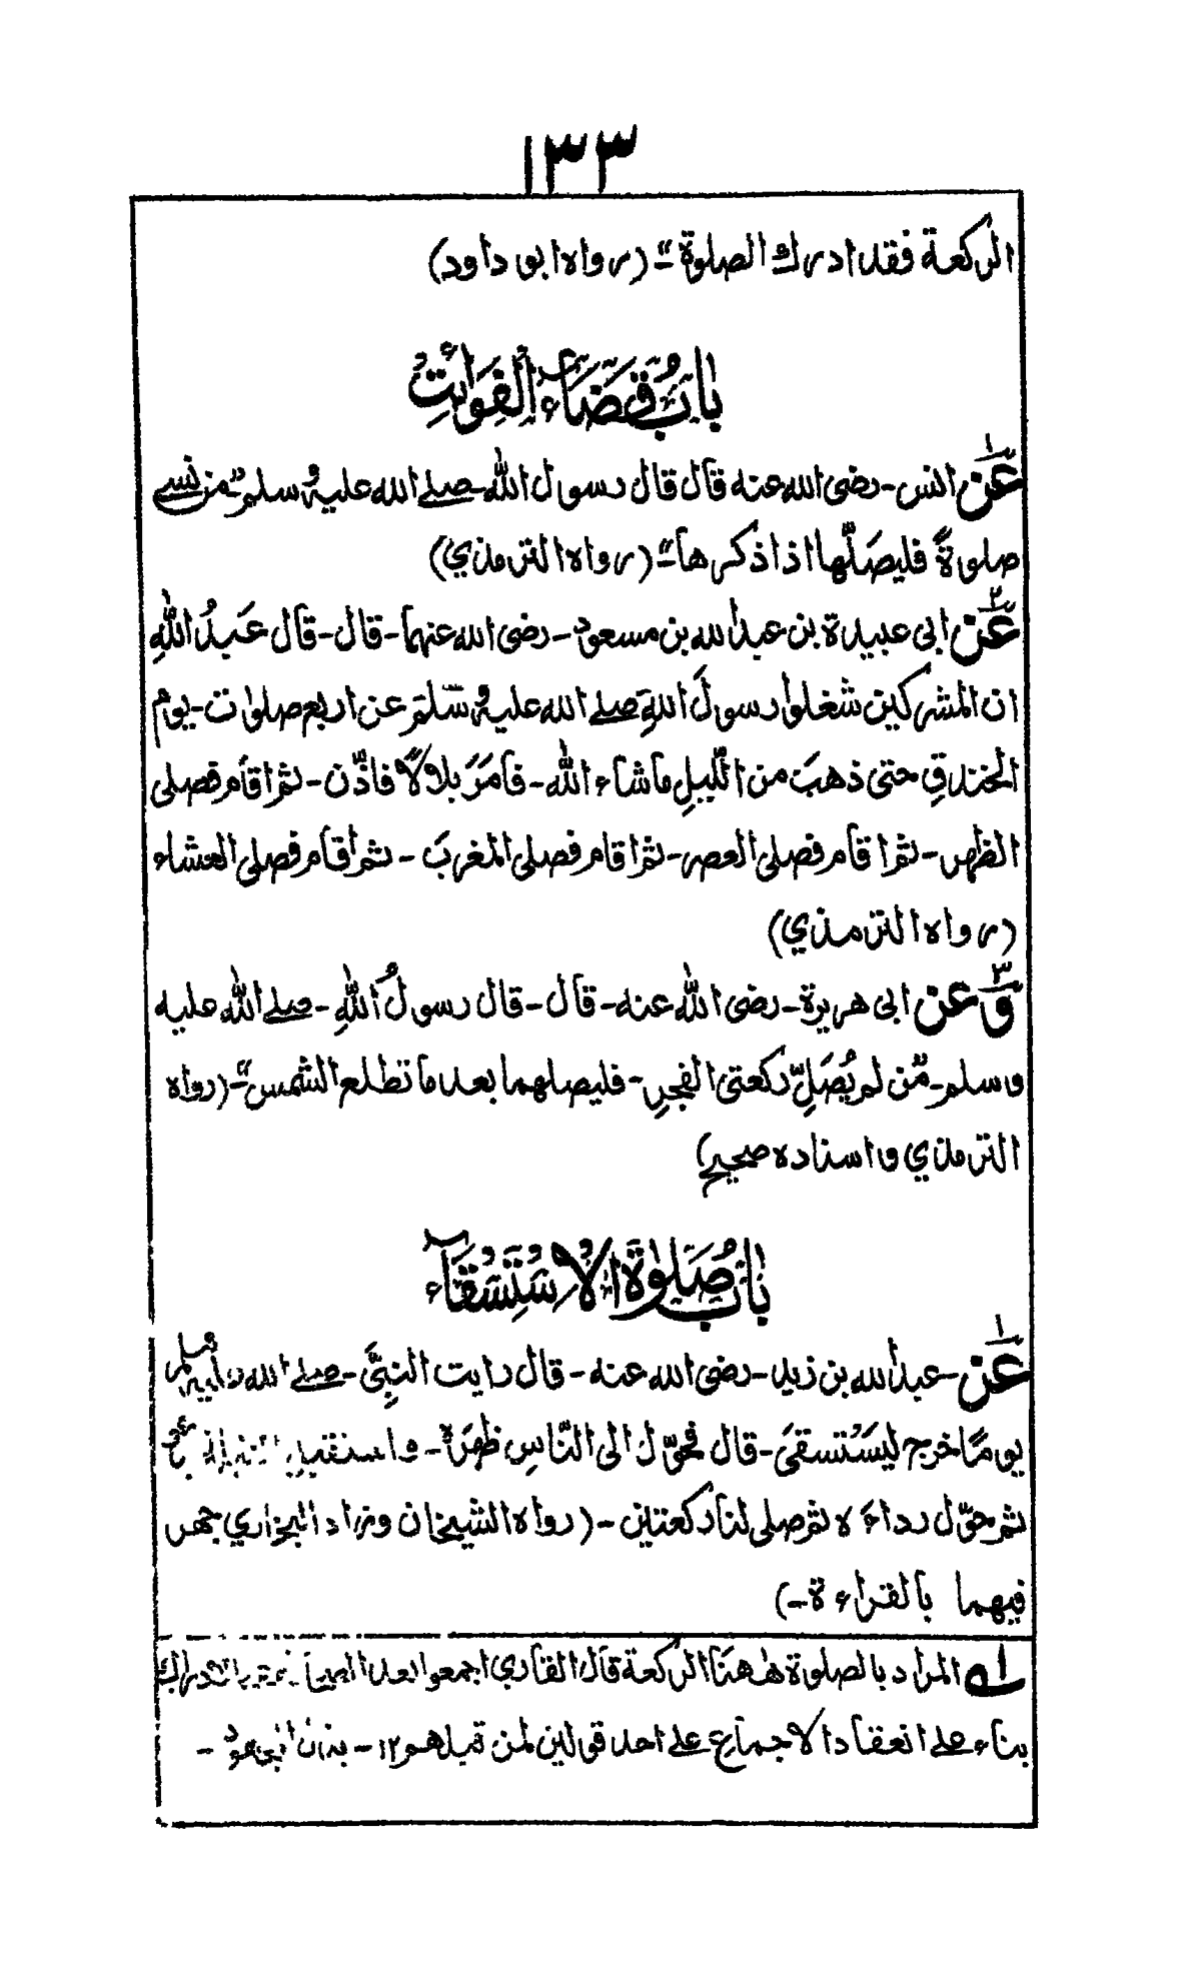 ١٣٣
الركعة فقد ادرك الصلوة"۔ (رواه ابو داود)
بَابُ قَضَاءِ الفَوَائِتِ
١ عَنْ انس۔ رضى الله عنه قال قال رسول الله صلے الله عليه وسلم "من نسے
صلوةً فليصلّها اذا ذكرها"۔ (رواه الترمذي)
٢ عَنْ ابى عبيدة بن عبد الله بن مسعود۔ رضى الله عنهما۔ قال۔ قال عَبدُ اللهِ
ان المشركين شغلوا رسولَ اللهِ صلے الله عليه وسلّم عن اربع صلوات۔ يوم
الخندقِ حتى ذهبَ من الّليلِ ما شاء الله۔ فأمَرَ بلالًا فاذّن۔ ثم اقام فصلى
الظهر۔ ثم اقام فصلى العصر۔ ثم اقام فصلى المغربَ۔ ثم اقام فصلى العشاء
(رواه الترمذي)
٣ وَعن ابى هريرة۔ رضى الله عنه۔ قال۔ قال رسولُ اللهِ۔ صلے الله عليه
وسلم۔ "من لم يُصَلِّ ركعتى الفجرِ۔ فليصلهما بعد ما تطلع الشمس"۔ (رواه
الترمذي واسناده صحيح)
بَابُ صَلٰوةِ الْاِسْتِسْقَاءِ
١ عَنْ۔ عبد الله بن زيد۔ رضى الله عنه۔ قال رايت النبِىَّ۔ صلے الله عليه وسلم
يومًا خرج ليَسْتسقىَ۔ قال فحوّل الى النّاسِ ظهرَهُ۔ واستقبل القبلة
ثم حوّل رداءَه ثم صلى لنا ركعتين۔ (رواه الشيخان وزاد البخاري جهر
فيهما بالقراءة۔)
١ المراد بالصلوة هٰهنا الركعة قال القاري اجمعوا بعد الادراك
بناء على انعقاد الاجماع على احد قولين لمن قبلهم ١٢۔